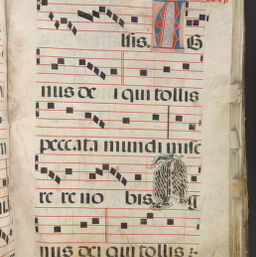 lsis. A G
nus de i qui tollis
peccata mundi mise
re re no bis A g
nus dei qui tollis